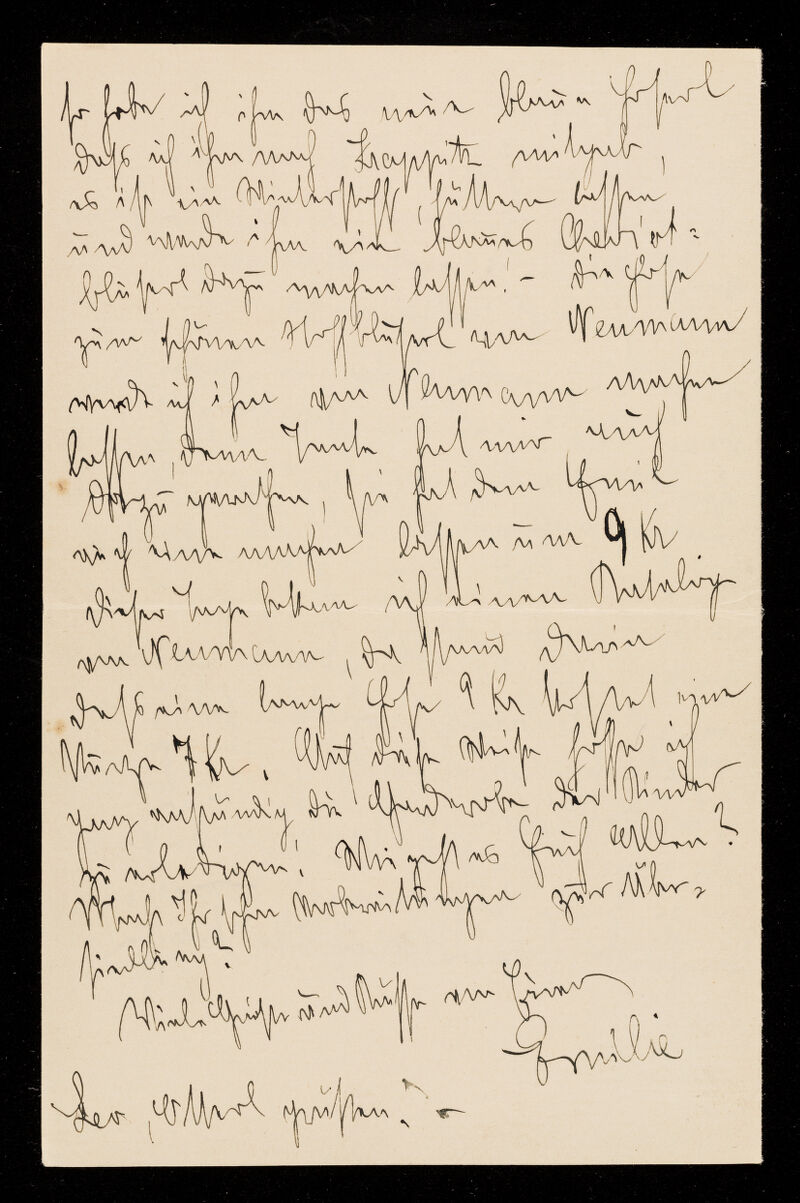 so habe ich ihm das neue blaue Hoserl
dass ich ihm nach Krappitz mitgab,
es ist ein Winterstoff, füttern lassen
und werde ihm ein blaues Cheviot=
bluserl dazu machen lassen! – Die Hose
zum schönen Stoffbluserl von Neumann
werde ich ihm von Neumann machen
lassen, denn Tante hat mir auch
dazu gerathen, sie hat dem Emil
auch eine machen lassen um 9 Kr
dieser Tage bekam ich einen Katalog
von Neumann, da stand darin
dass eine lange Hose 9 Kr kostet eine
kurze 7 Kr. Auf diese Weise hoffe ich
ganz anständig die Garderobe der Kinder
zu erledigen! Wie geht es Euch Allen?
Macht Ihr schon Vorbereitungen zur Über=
siedlung?
Viele Grüße und Küsse von Eurer
Emilie
Leo, Otterl grüßen! –